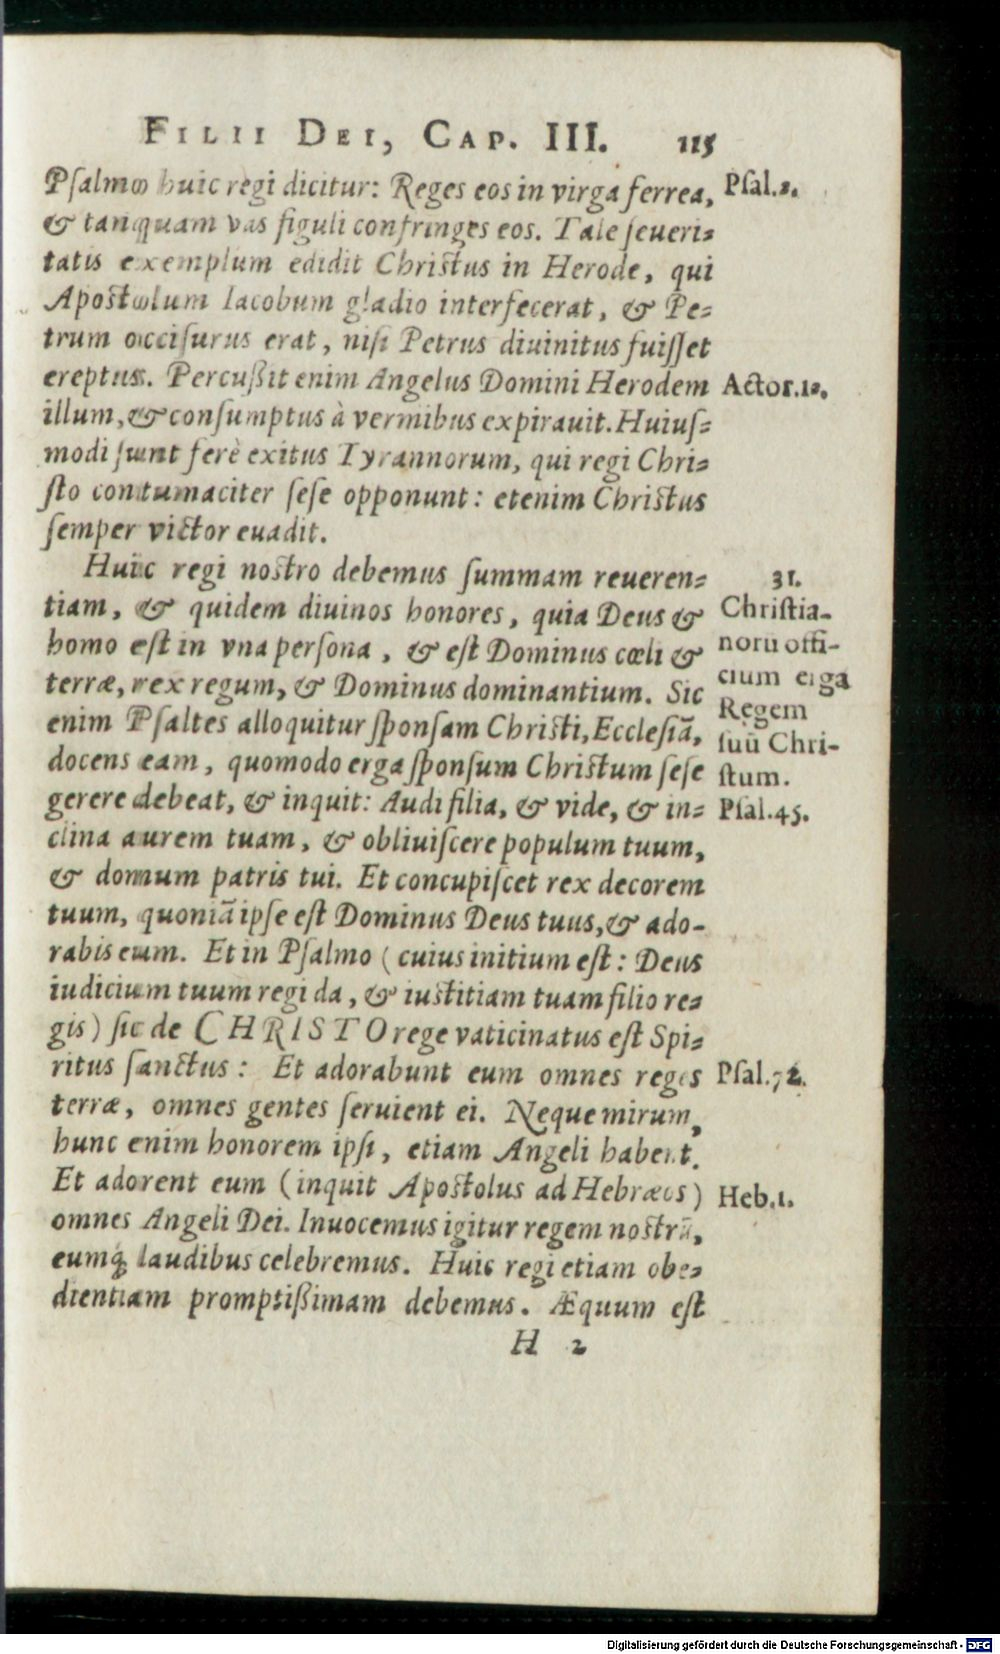 FILII DEI, CAP. III. 115
Pſalmo huic regi dicitur: Reges eos in virga ferrea, Pſal.2.
& tanquam vas figuli confringes eos. Tale ſeueri-
tatis exemplum edidit Christus in Herode, qui
Apostolum Iacobum gladio interfecerat, & Pe-
trum occiſurus erat, niſi Petrus diuinitus fuiſſet
ereptus. Percußit enim Angelus Domini Herodem Actor.12.
illum, & conſumptus à vermibus expirauit. Huiuſ-
modi ſunt ferè exitus Tyrannorum, qui regi Chri-
ſto contumaciter ſeſe opponunt: etenim Christus
ſemper victor euadit.
Huic regi nostro debemus ſummam reueren- 31.
tiam, & quidem diuinos honores, quia Deus & Chriſtia-
homo eſt in vna perſona, & eſt Dominus cœli & norū offi-
terræ, rex regum, & Dominus dominantium. Sic cium erga
enim Pſaltes alloquitur ſponſam Christi, Eccleſiā, Regem
docens eam, quomodo erga ſponſum Christum ſeſe ſuū Chri-
ſtum.
gerere debeat, & inquit: Audi filia, & vide, & in- Pſal.45.
clina aurem tuam, & obliuiſcere populum tuum,
& domum patris tui. Et concupiſcet rex decorem
tuum, quoniā ipſe eſt Dominus Deus tuus, & ado-
rabis eum. Et in Pſalmo (cuius initium eſt: Deus
iudicium tuum regi da, & iustitiam tuam filio re-
gis) ſic de CHRISTO rege vaticinatus eſt Spi-
ritus ſanctus: Et adorabunt eum omnes reges Pſal.72.
terræ, omnes gentes ſeruient ei. Neque mirum,
hunc enim honorem ipſi, etiam Angeli habent.
Et adorent eum (inquit Apostolus ad Hebræos) Heb.1.
omnes Angeli Dei. Inuocemus igitur regem nostrū,
eumq́; laudibus celebremus. Huic regi etiam obe-
dientiam promptißimam debemus. Æquum eſt
H 2
Digitalisierung gefördert durch die Deutsche Forschungsgemeinschaft - DFG